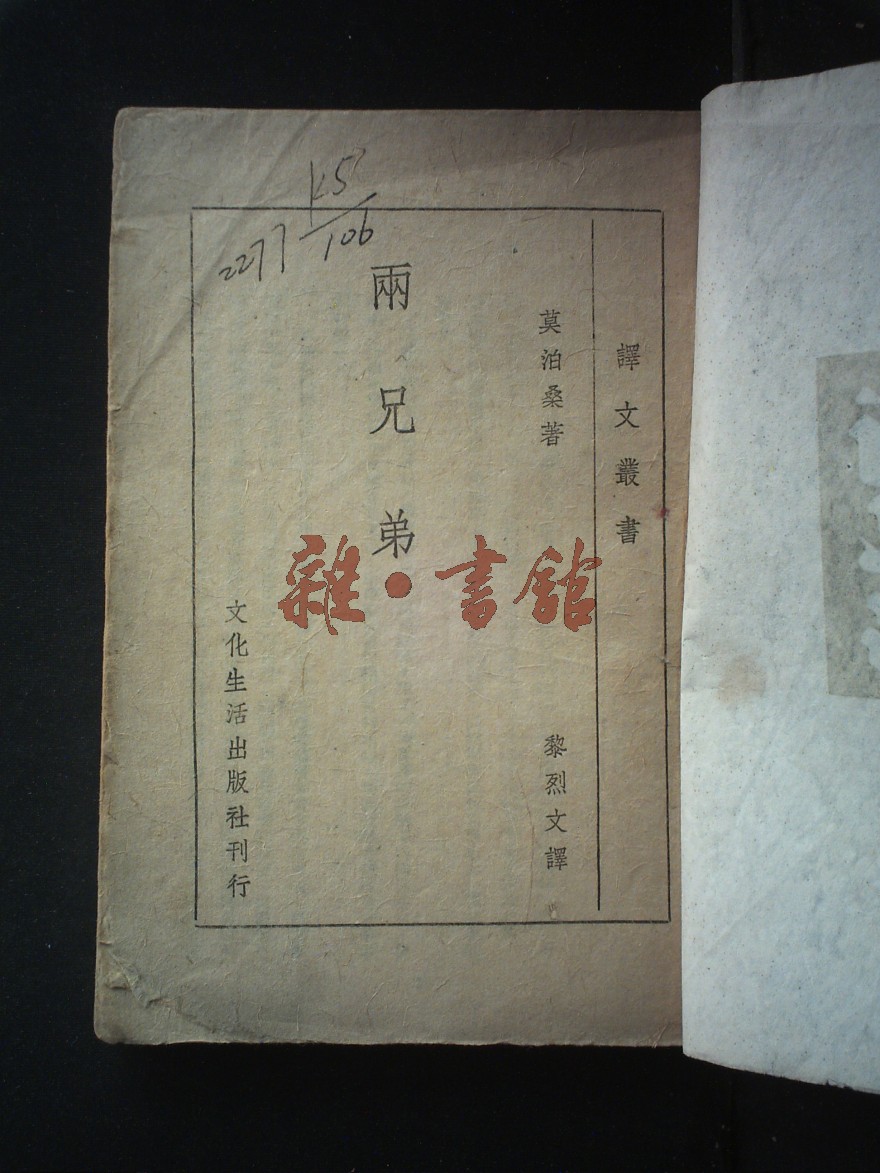 譯文叢書
莫泊桑著
黎烈文譯
兩兄弟
文化生活出版社刊行
K5
106
2277
雜·書館